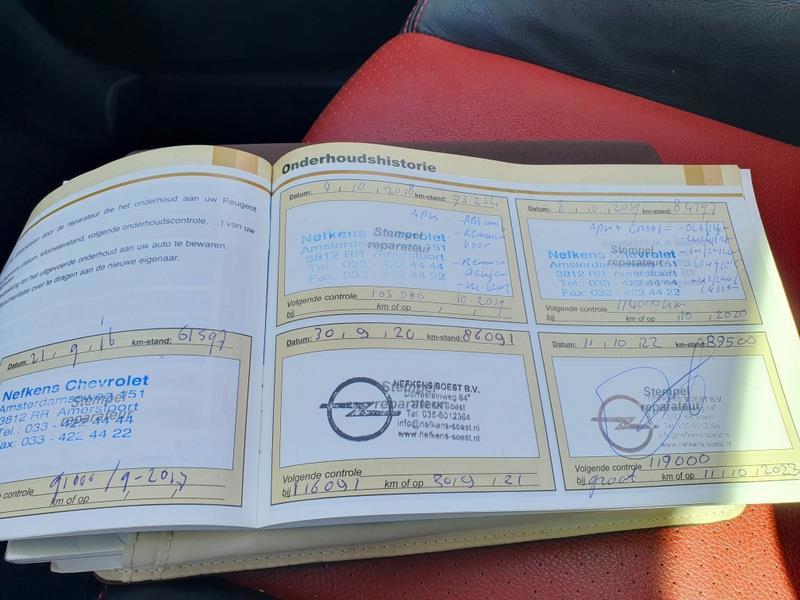 de reparateur die het onderhoud aan uw Peugeot
datum, kilometerstand, volgende onderhoudscontrole, ...) van uw
uitgevoerde onderhoud aan uw auto te bewaren.
over te dragen aan de nieuwe eigenaar.
Datum: 21, 9, 16 km-stand: 61597
Nefkens Chevrolet
Stempel
Amsterdamseweg 151
reparateur
3812 RR Amersfoort
Tel.: 033 - 422 44 44
Fax: 033 - 422 44 22
controle 91000 / 9-2017
km of op
Onderhoudshistorie
Datum: 4, 10, 2018 km-stand: 73-254
Nefkens Chevrolet
Stempel
Amsterdamseweg 151
reparateur
3812 RR Amersfoort
Tel.: 033 - 422 44 44
Fax: 033 - 422 44 22
Volgende controle 103 10-2019
bij km of op
Datum: 8, 10, 2019 km-stand: 84197
APK + Groot =
Nefkens Chevrolet
Stempel
Amsterdamseweg 151
reparateur
3812 RR Amersfoort
Tel.: 033 - 422 44 44
Fax: 033 - 422 44 22
Volgende controle 114000 km
bij km of op 10, 2020
Datum: 30, 9, 20 km-stand: 86091
NEFKENS SOEST B.V.
Stempel
reparateur
Soest
Tel. 035-6012364
info@nefkens-soest.nl
www.nefkens-soest.nl
Volgende controle
bij 116091 km of op 30, 9, 21
Datum: 11, 10, 22 km-stand: 89500
Stempel
NEFKENS SOEST B.V.
reparateur
info@nefkens-soest.nl
www.nefkens-soest.nl
Volgende controle 119000
bij groot km of op 11, 10, 2023